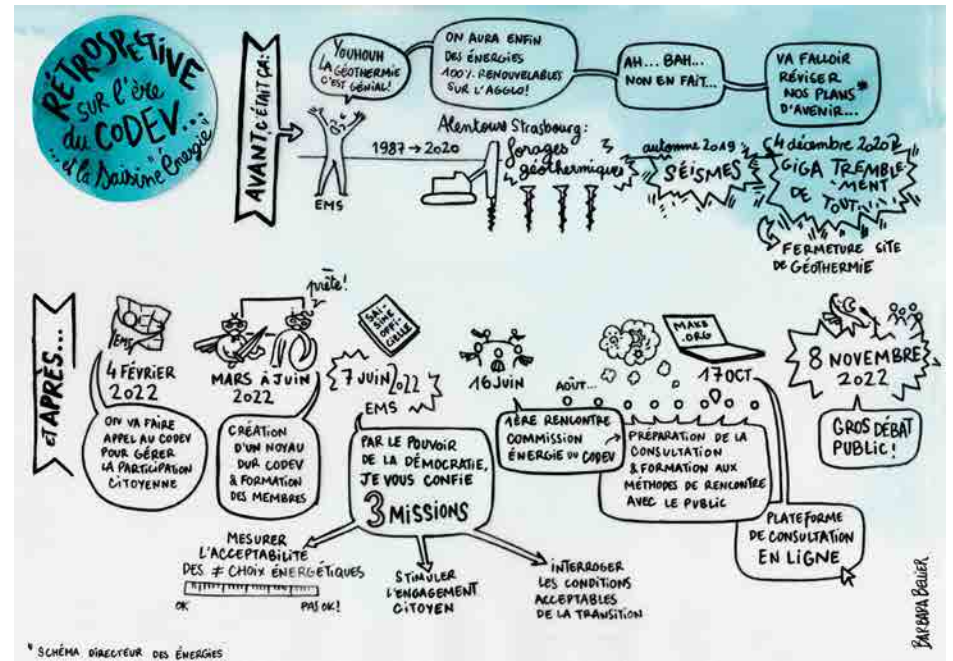 RÉTROSPECTIVE
SUR l'ère
du CODEV...
et la Saisine "Énergie"
AVANT, C'ÉTAIT ÇA:
YOUHOUH
LA GÉOTHERMIE
C'EST GÉNIAL!
ON AURA ENFIN
DES ÉNERGIES
100% RENOUVELABLES
SUR L'AGGLO!
AH... BAH...
NON EN FAIT...
VA FALLOIR
RÉVISER
NOS PLANS*
D'AVENIR...
EMS
1987 → 2020
Alentours Strasbourg:
forages
géothermiques
automne 2019
SÉISMES
4 décembre 2020
GIGA TREMBLE-
MENT
DE TOUT...
FERMETURE SITE
DE GÉOTHERMIE
ET APRÈS...
EMS
4 FÉVRIER
2022
ON VA FAIRE
APPEL AU CODEV
POUR GÉRER
LA PARTICIPATION
CITOYENNE
prête!
MARS À JUIN
2022
CRÉATION
D'UN NOYAU
DUR CODEV
& FORMATION
DES MEMBRES
SAI-
SINE
OFFI-
CIELLE
7 JUIN 2022
EMS
PAR LE POUVOIR
DE LA DÉMOCRATIE,
JE VOUS CONFIE
3 MISSIONS
MESURER
L'ACCEPTABILITÉ
DES ≠ CHOIX ÉNERGÉTIQUES
OK
PAS OK!
STIMULER
L'ENGAGEMENT
CITOYEN
INTERROGER
LES CONDITIONS
ACCEPTABLES
DE LA TRANSITION
16 JUIN
1ÈRE RENCONTRE
COMMISSION
ÉNERGIE DU CODEV
AOÛT...
PRÉPARATION DE LA
CONSULTATION
& FORMATION AUX
MÉTHODES DE RENCONTRE
AVEC LE PUBLIC
MAKE
.ORG
17 OCT
PLATEFORME
DE CONSULTATION
EN LIGNE
8 NOVEMBRE
2022
GROS DÉBAT
PUBLIC!
BARBARA BELLIER
* SCHÉMA DIRECTEUR DES ÉNERGIES